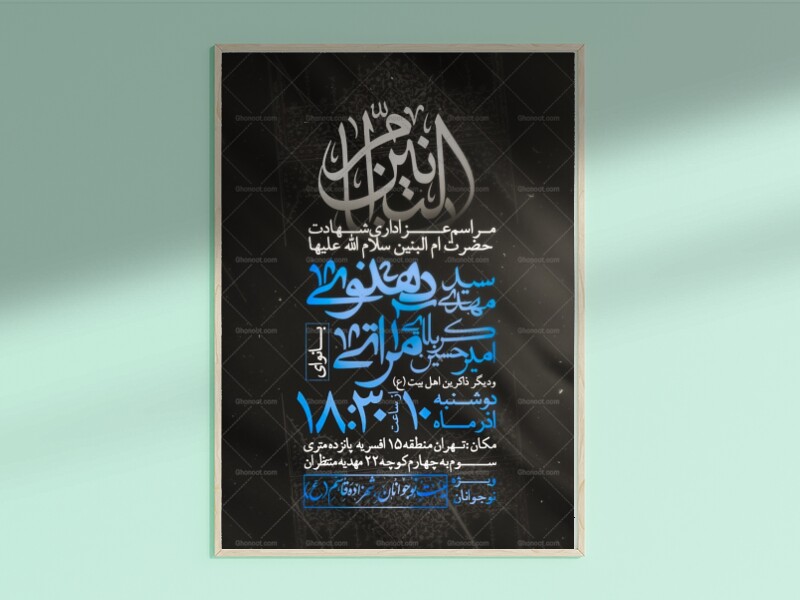 ام البنین
مراسم عزاداری شهادت
حضرت ام البنین سلام الله علیها
بانوای
سید مهدی دهنوی
کربلائی امیرحسین مراتی
و دیگر ذاکرین اهل بیت (ع)
دوشنبه ۱۰ آذر ماه از ساعت ۱۸:۳۰
مکان : تهران منطقه ۱۵ افسریه پانزده متری
سوم به چهارم کوچه ۲۲ مهدیه منتظران
ویژه نوجوانان
هیئت نوجوانان شهزاده قاسم (ع)
Ghonoot.com